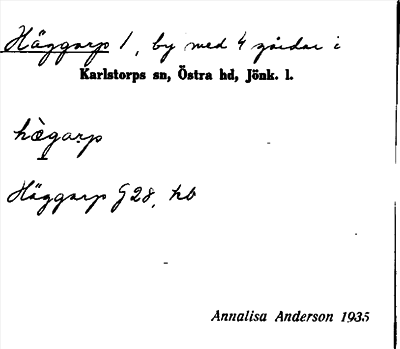 Häggarp 1, by med 4 gårdar i
Karlstorps sn, Östra hd, Jönk. l.
hægarp
Häggarp G28, hb
Annalisa Anderson 1935